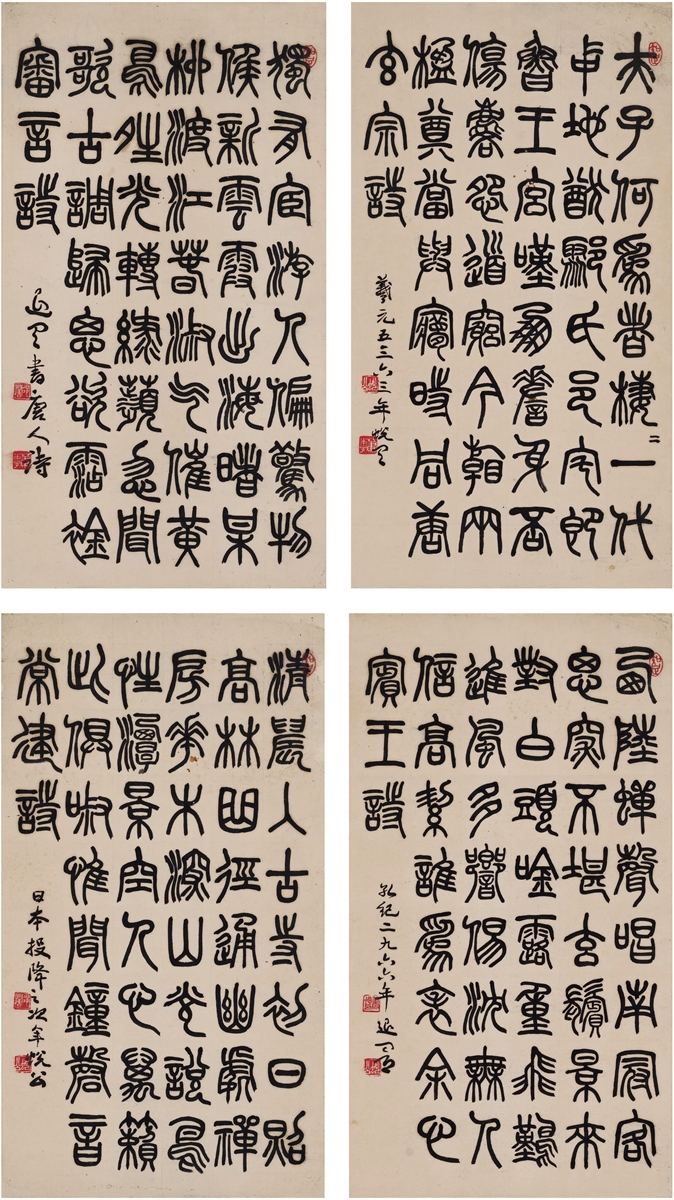 夫子何為者棲二一代
中地猶鄹氏邑宅即
魯王宮嘆鳳嗟身否
傷麟怨道窮今看兩
楹奠當與夢時同唐
玄宗詩
羲元五三六三年蛻叟
獨有宦游人偏驚物
候新雲霞出海曙某
柳渡江春淑气催黃
鳥晴光轉綠蘋忽聞
歌古調歸思欲霑襟
審言詩
退叟書唐人詩
西陸蟬聲唱南冠客
思深不堪玄鬢景來
對白頭唫露重飛難
進風多響易沈無人
信高潔誰為表余心
賓王詩
孔紀二九六六年退
清晨入古寺初日照
高林曲徑通幽處禪
房花木深山光說鳥
性潭景空人心萬籟
此俱寂惟聞鐘磬音
常建詩
日本投降之次年蛻公